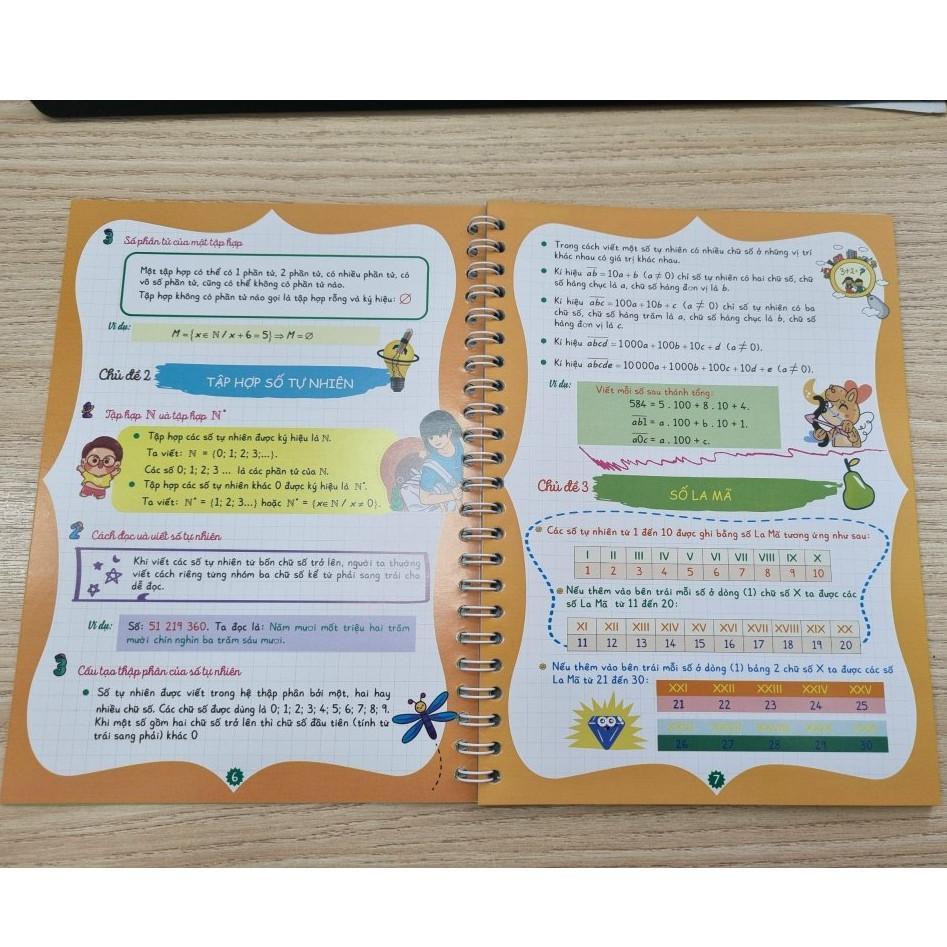 3 Số phần tử của một tập hợp
Một tập hợp có thể có 1 phần tử, 2 phần tử, có nhiều phần tử, có
vô số phần tử, cũng có thể không có phần tử nào.
Tập hợp không có phần tử nào gọi là tập hợp rỗng và ký hiệu: ∅
Ví dụ:
M = {x ∈ ℕ / x + 6 = 5} ⇒ M = ∅
Chủ đề 2
TẬP HỢP SỐ TỰ NHIÊN
1 Tập hợp ℕ và tập hợp ℕ*
• Tập hợp các số tự nhiên được ký hiệu là ℕ.
Ta viết: ℕ = {0; 1; 2; 3;...}.
Các số 0; 1; 2; 3 ... là các phần tử của ℕ.
• Tập hợp các số tự nhiên khác 0 được ký hiệu là ℕ*.
Ta viết: ℕ* = {1; 2; 3...} hoặc ℕ* = {x∈ ℕ / x ≠ 0}.
2 Cách đọc và viết số tự nhiên
Khi viết các số tự nhiên từ bốn chữ số trở lên, người ta thường
viết cách riêng từng nhóm ba chữ số kể từ phải sang trái cho
dễ đọc.
Ví dụ:
Số: 51 219 360. Ta đọc là: Năm mươi mốt triệu hai trăm
mười chín nghìn ba trăm sáu mươi.
3 Cấu tạo thập phân của số tự nhiên
• Số tự nhiên được viết trong hệ thập phân bởi một, hai hay
nhiều chữ số. Các chữ số được dùng là 0; 1; 2; 3; 4; 5; 6; 7; 8; 9.
Khi một số gồm hai chữ số trở lên thì chữ số đầu tiên (tính từ
trái sang phải) khác 0
6
• Trong cách viết một số tự nhiên có nhiều chữ số ở những vị trí
khác nhau có giá trị khác nhau.
• Kí hiệu a̅b̅ = 10a + b (a ≠ 0) chỉ số tự nhiên có hai chữ số, chữ
số hàng chục là a, chữ số hàng đơn vị là b.
• Kí hiệu a̅b̅c̅ = 100a + 10b + c (a ≠ 0) chỉ số tự nhiên có ba
chữ số, chữ số hàng trăm là a, chữ số hàng chục là b, chữ số
hàng đơn vị là c.
• Kí hiệu a̅b̅c̅d̅ = 1000a + 100b + 10c + d (a ≠ 0).
• Kí hiệu a̅b̅c̅d̅e̅ = 10000a + 1000b + 100c + 10d + e (a ≠ 0).
3+2=?
Ví dụ:
Viết mỗi số sau thành tổng:
584 = 5 . 100 + 8 . 10 + 4.
a̅b̅1̅ = a . 100 + b . 10 + 1.
a̅0̅c̅ = a . 100 + c.
Chủ đề 3
SỐ LA MÃ
Các số tự nhiên từ 1 đến 10 được ghi bằng số La Mã tương ứng như sau:
I II III IV V VI VII VIII IX X
1 2 3 4 5 6 7 8 9 10
Nếu thêm vào bên trái mỗi số ở dòng (1) chữ số X ta được các
số La Mã từ 11 đến 20:
XI XII XIII XIV XV XVI XVII XVIII XIX XX
11 12 13 14 15 16 17 18 19 20
Nếu thêm vào bên trái mỗi số ở dòng (1) bằng 2 chữ số X ta được các số
La Mã từ 21 đến 30:
XXI XXII XXIII XXIV XXV
21 22 23 24 25
26 27 28 29 30
7